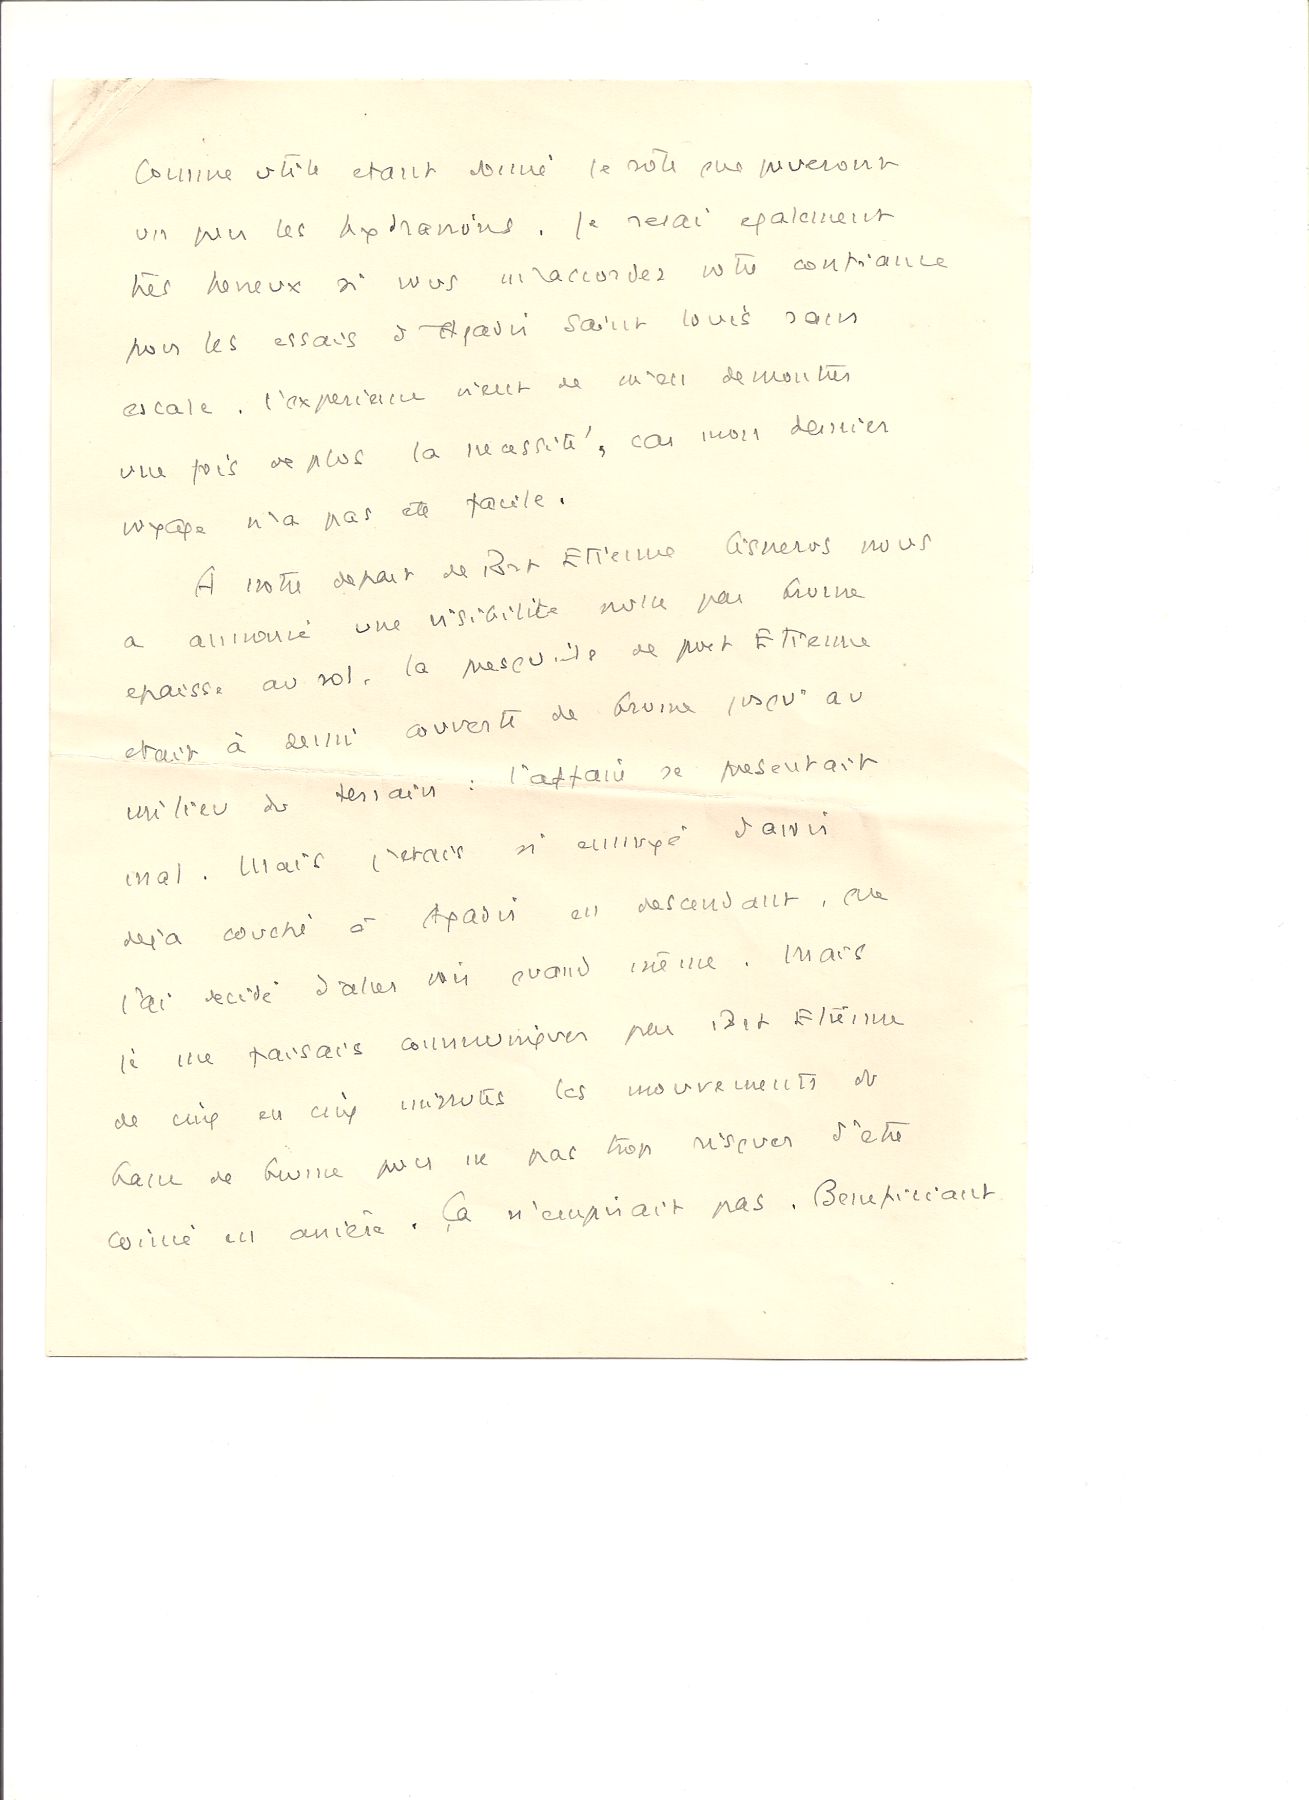 Comme utile etant donné le rôle que joueront
un jour les hydravions. Je serai egalement
très heureux si vous m'accordez votre confiance
pour les essais d'Agadir Saint Louis sans
escale. l'experience vient de m'en demontrer
une fois de plus la necessité, car mon dernier
voyage n'a pas ete facile.
A notre depart de Port Etienne Cisneros nous
a annoncé une visibilite nulle par brume
epaisse au sol. la presqu'ile de port Etienne
etait à demi couverte de brume jusqu'au
milieu du terrain : l'affaire se presentait
mal. Mais j'etais si ennuyé d'avoir
deja couché à Agadir en descendant, que
j'ai decidé d'aller voir quand même. Mais
je me faisais communiquer par Port Etienne
de cinq en cinq minutes les mouvements du
banc de brume pour ne pas trop risquer d'etre
coincé en arrière. Ça n'empirait pas. Beneficiant